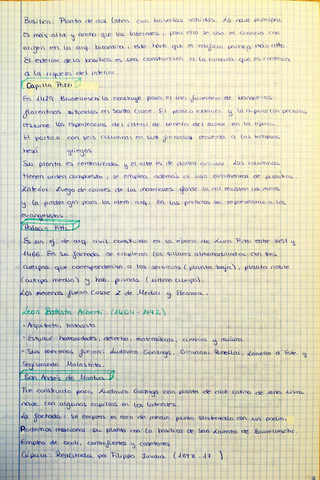 Basílica: Planta de cruz latina con bóvedas vahídas. La nave principal
Es más alta y ancha que las laterales, para ello se usa el
origen en la arq. bizantina, esto hace que el edificio parezca más alto
El exterior de la basílica es una construcción a la romana que es contraria
a la riqueza del interior.
Capilla Pazzi
En 1429 Brunelleschi la construye para el uso funerario de banqueros
florentinos situándose en Santa Croce. El pórtico exterior y la cúpula
resume las experiencias del
El pórtico con seis columnas en sus fachadas recuerda a los templos
hexá griegos.
Su planta es centralizada y el altar es de planta circular. Las columnas
tienen orden compuesto, se emplea además el uso
Interior: Juego de colores de los materiales, donde la cal
y la piedra gris para los elem arq. En las pechinas se representan a los
evangelistas
Palacio Pitti
Es un ej. de arq. civil construido en la época de Luca Pitti entre 1451 y
1466. En su fachada, se emplean los sillares almohadillados con tres
cuerpos que corresponden a los servicios (planta baja), planta noble
(cuerpo medio) y hab. privada (último cuerpo).
Los mecenas fueron Cosme I de Medici y Eleonora.
León Battista Alberti (1404-1472)
· Arquitecto, tratadista
· Estudió humanidades, derecho, matemáticas, ciencias y música.
· Sus mecenas fueron: Ludovico Gonzaga, Giovanni Rucellai, Lionello d'Este y
Segismundo Malatesta.
San Andrés de Mantua
Fue construido para Ludovico Gonzaga con planta de cruz latina de una única
nave con algunas capillas en los laterales.
La fachada: se emplea el arco de medio punto sustentado con sus
Podemos relacionar su planta con la basílica de San Lorenzo de Brunelleschi.
Empleo de óculi, contrafuertes y casetones
Cúpula: Realizada por Filippo Juvara